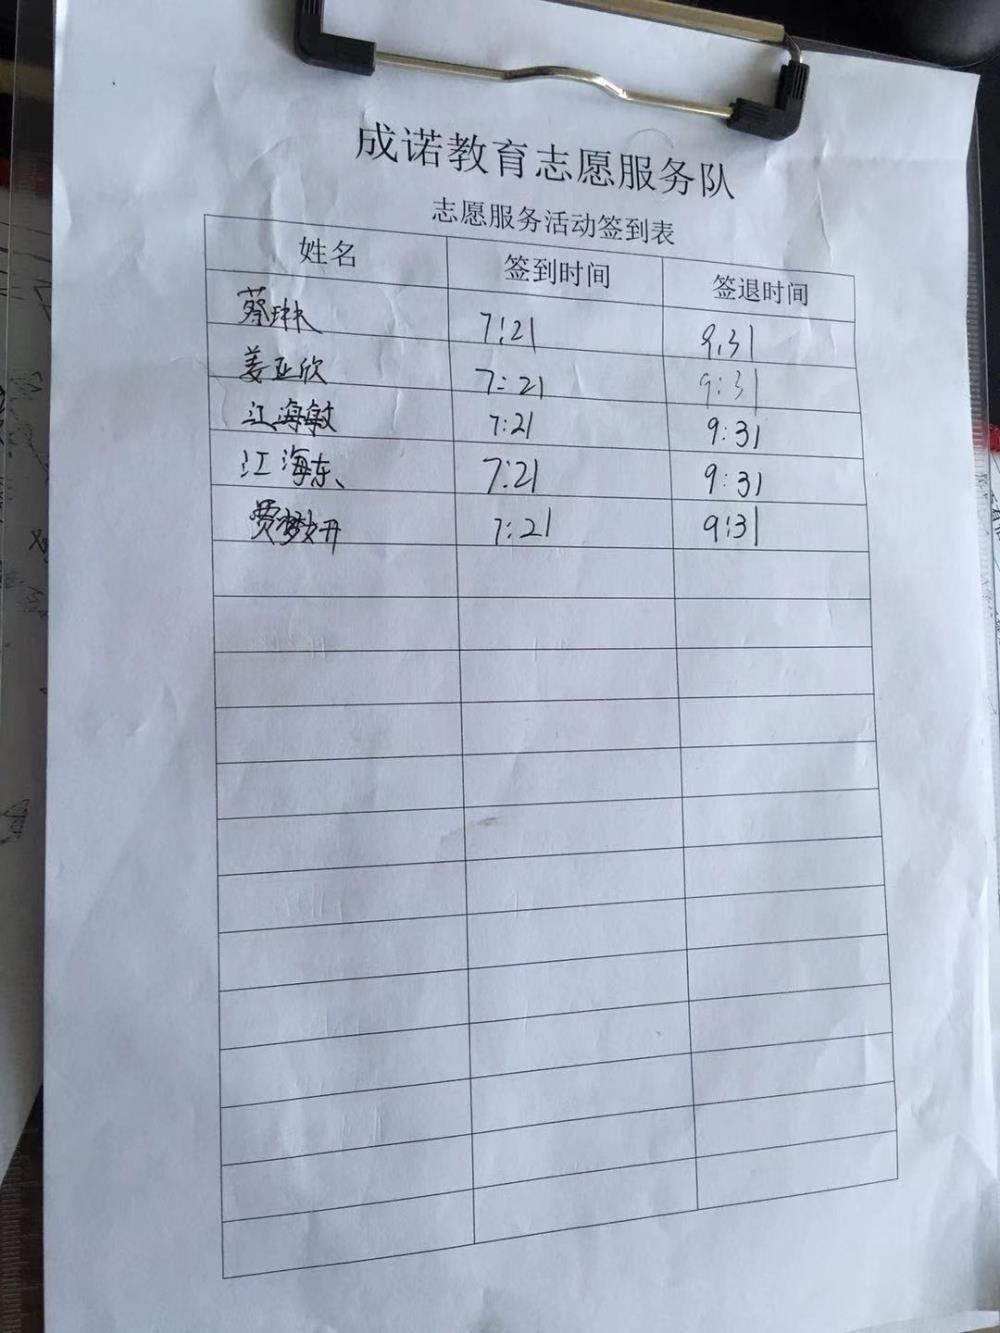 成诺教育志愿服务队
志愿服务活动签到表
姓名 签到时间 签退时间
蔡琳 7:21 9:31
姜亚欣 7:21 9:31
江海敏 7:21 9:31
江海东、 7:21 9:31
贾梦妍 7:21 9:31